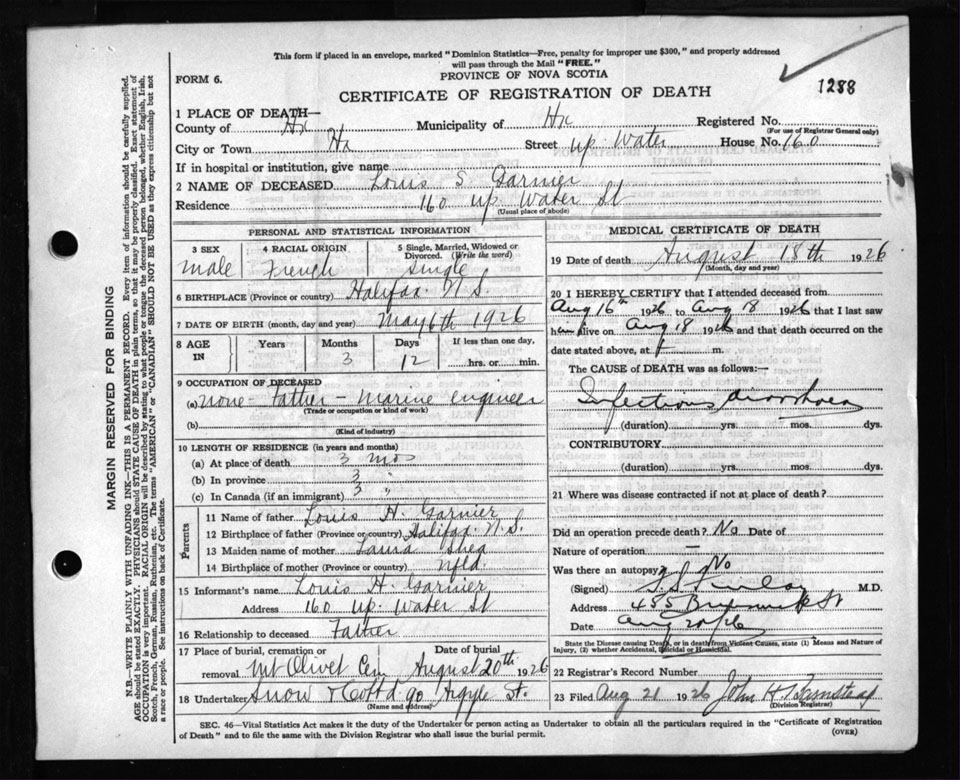 This form if placed in an envelope, marked "Dominion Statistics—Free, penalty for improper use $300," and properly addressed
will pass through the Mail "FREE."
FORM 6.
PROVINCE OF NOVA SCOTIA
1288
CERTIFICATE OF REGISTRATION OF DEATH
1 PLACE OF DEATH—
County of Hx Municipality of Hx Registered No.
(For use of Registrar General only)
City or Town Hx Street up. Water House No. 160
If in hospital or institution, give name
2 NAME OF DECEASED Louis S. Garnier
Residence 160 up Water St
(Usual place of abode)
PERSONAL AND STATISTICAL INFORMATION
3 SEX 4 RACIAL ORIGIN 5 Single, Married, Widowed or
Divorced. (Write the word)
Male French Single
6 BIRTHPLACE (Province or country) Halifax N.S.
7 DATE OF BIRTH (month, day and year) May 6th 1926
8 AGE
IN
Years Months Days If less than one day,
3 12 hrs. or min.
9 OCCUPATION OF DECEASED
(a) none - Father - Marine engineer
(Trade or occupation or kind of work)
(b)
(Kind of industry)
10 LENGTH OF RESIDENCE (in years and months)
(a) At place of death 3 mos
(b) In province 3 "
(c) In Canada (if an immigrant) 3 "
Parents
11 Name of father Louis H. Garnier
12 Birthplace of father (Province or country) Halifax N.S.
13 Maiden name of mother Laura Shea
14 Birthplace of mother (Province or country) Nfld.
15 Informant's name Louis H. Garnier
Address 160 up. Water St
16 Relationship to deceased Father
17 Place of burial, cremation or Date of burial
removal Mt Olivet Cem August 20th 1926
18 Undertaker Snow & Co Ltd 90 Argyle St.
(Name and address)
MEDICAL CERTIFICATE OF DEATH
19 Date of death August 18th 1926
(Month, day and year)
20 I HEREBY CERTIFY that I attended deceased from
Aug 16th 1926 to Aug 18 1926 that I last saw
him alive on Aug 18 1926 and that death occurred on the
date stated above, at m.
The CAUSE OF DEATH was as follows:—
Infectious diarrhoea
(duration) yrs. mos. dys.
CONTRIBUTORY
(duration) yrs. mos. dys.
21 Where was disease contracted if not at place of death?
Did an operation precede death? No Date of
Nature of operation —
Was there an autopsy? No
(Signed) M.D.
Address 455 Brunswick St
Date Aug 20/26
State the Disease causing Death, or in death from Violent Causes, state (1) Means and Nature of
Injury, (2) whether Accidental, Suicidal or Homicidal.
22 Record Registration Number
23 Filed Aug 21 1926 John H. Barnstead
(Division Registrar)
SEC. 46—Vital Statistics Act makes it the duty of the Undertaker or person acting as Undertaker to obtain all the particulars required in the "Certificate of Registration
of Death" and to file the same with the Division Registrar who shall issue the burial permit.
(OVER)
MARGIN RESERVED FOR BINDING
N.B.—WRITE PLAINLY WITH UNFADING INK—THIS IS A PERMANENT RECORD. Every item of information should be carefully supplied.
AGE should be stated EXACTLY. PHYSICIANS should STATE CAUSE OF DEATH in plain terms, so that it may be properly classified. Exact statement of
OCCUPATION is very important. RACIAL ORIGIN will be described by stating to what people or tongue the deceased person belonged, whether English, Irish,
Scotch, French, German, Russian, Ruthenian, etc. The terms "AMERICAN" or "CANADIAN" SHOULD NOT BE USED as they express citizenship but not
a race or people. See instructions on back of Certificate.